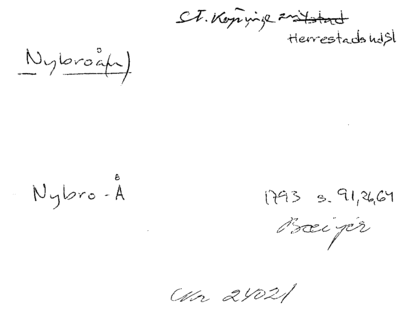 St. Köpinge sn Ystad
Herrestads hd Sl
Nybroå(n)
Nybro-Å
1793 s. 91,26,64
Nr 24021